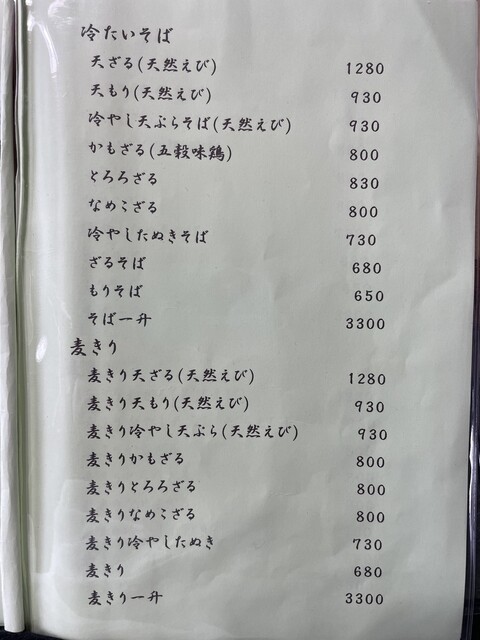 冷たいそば
天ざる(天然えび) 1280
天もり(天然えび) 930
冷やし天ぷらそば(天然えび) 930
かもざる(五穀味鶏) 800
とろろざる 830
なめこざる 800
冷やしたぬきそば 730
ざるそば 680
もりそば 650
そば一升 3300
麦きり
麦きり天ざる(天然えび) 1280
麦きり天もり(天然えび) 930
麦きり冷やし天ぷら(天然えび) 930
麦きりかもざる 800
麦きりとろろざる 800
麦きりなめこざる 800
麦きり冷やしたぬき 730
麦きり 680
麦きり一升 3300